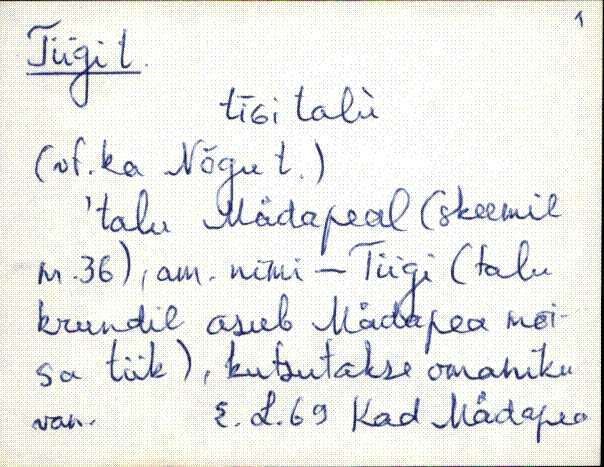 1
Tiigi t.
tīGi talù
(vt. ka Nõgu t.)
'talu Mådapeal (skeemil
nr. 36), am. nimi — Tiigi (talu
krundil asub Mådapea mõi-
sa tiik), kutsutakse omaniku
van. E. L. 69 Kad Mådapea